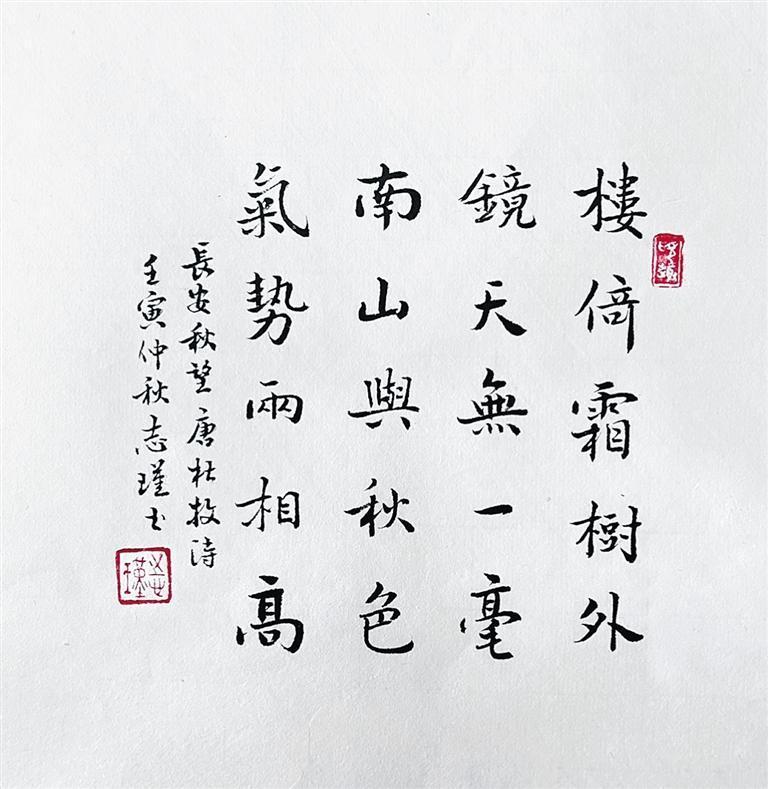 樓倚霜樹外
鏡天無一毫
南山與秋色
氣勢兩相高
長安秋望 唐杜牧詩
壬寅仲秋志瑾书
志瑾